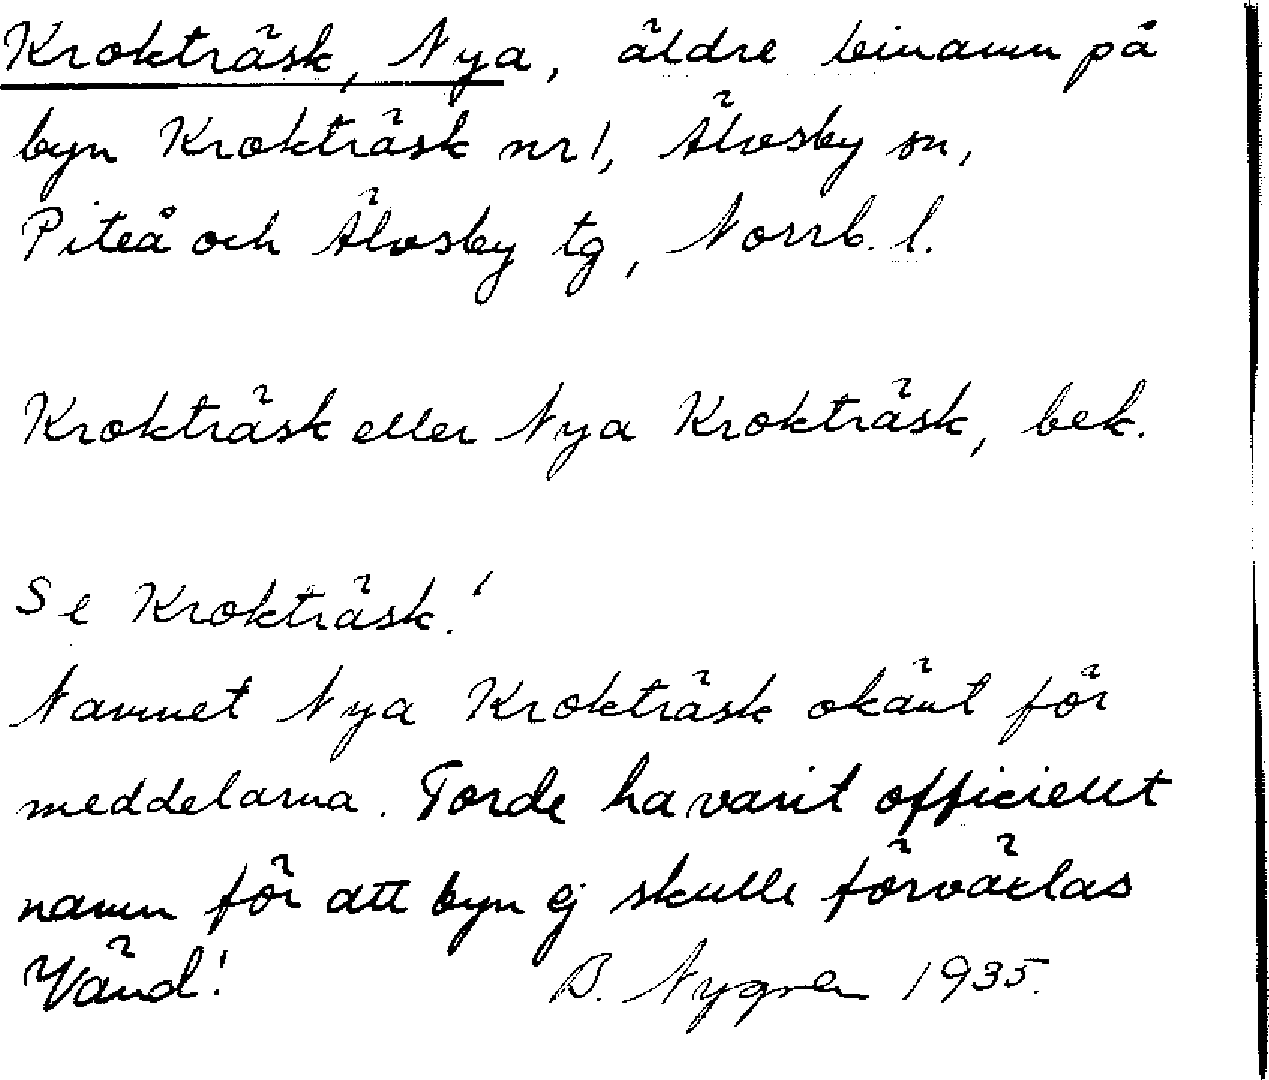 Krokträsk, Nya, äldre binamn på
byn Krokträsk nr 1, Älvsby sn,
Piteå och Älvsby tg, Norrb. l.
Krokträsk eller Nya Krokträsk, bek.
Se Krokträsk!
Namnet Nya Krokträsk okänt för
meddelarna. Torde ha varit officiellt
namn för att byn ej skulle förväxlas
Vänd! B. Nygren 1935.